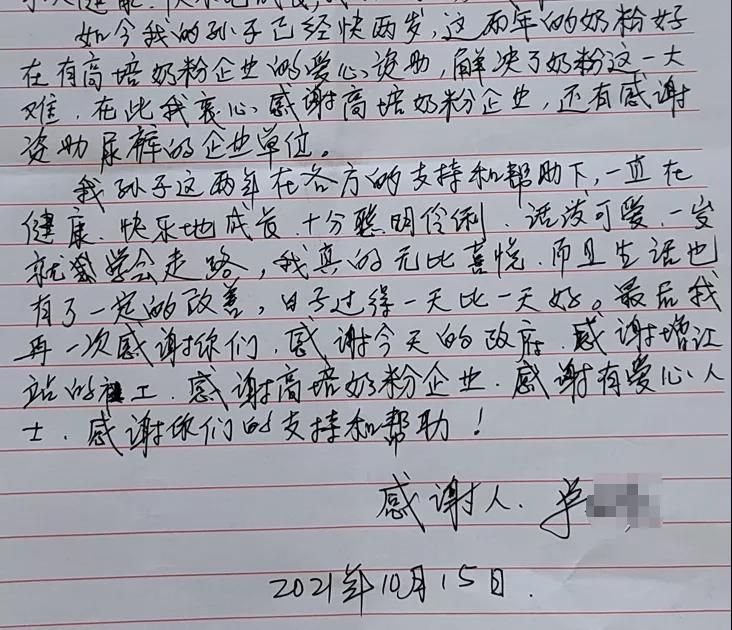 如今我的孙子已经快两岁,这两年的奶粉好
在有高培奶粉企业的爱心资助,解决了奶粉这一大
难。在此我衷心感谢高培奶粉企业,还有感谢
资助尿裤的企业单位。
我孙子这两年在各方的支持和帮助下,一直在
健康、快乐地成长,十分聪明伶俐、活泼可爱,一岁
就学会走路,我真的无比喜悦,而且生活也
有了一定的改善,日子过得一天比一天好。最后我
再一次感谢你们,感谢今天的政府,感谢增江
站的社工,感谢高培奶粉企业,感谢有爱心人
士,感谢你们的支持和帮助!
感谢人:单
2021年10月15日.